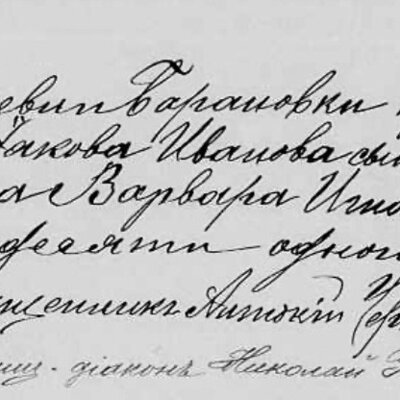 евни Барановки
Іакова Иванова сы
а Варвара Игна
десяти одного
щенникъ Антоній
діаконъ Николай